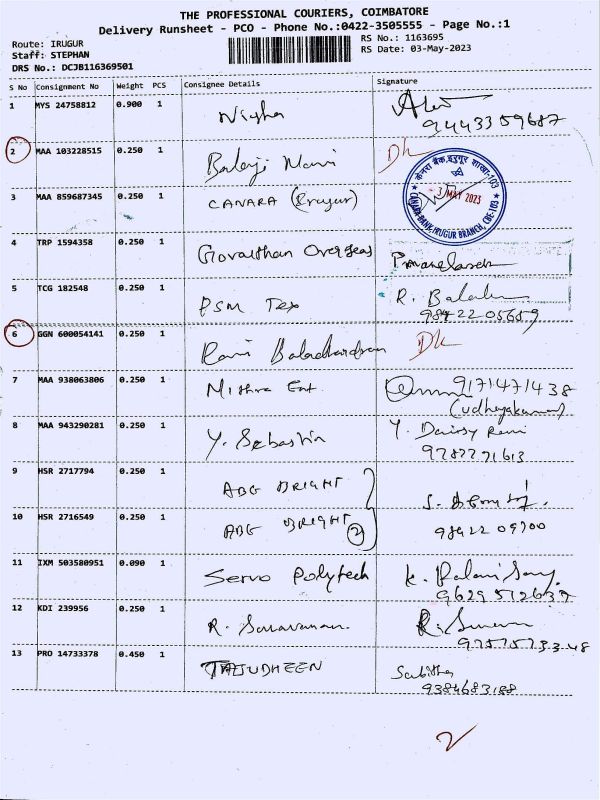 THE PROFESSIONAL COURIERS, COIMBATORE
Delivery Runsheet - PCO - Phone No.:0422-3505555 - Page No.:1
Route: IRUGUR
RS No.: 1163695
Staff: STEPHAN
RS Date: 03-May-2023
DRS No.: DCJB116369501
S No Consignment No Weight PCS Consignee Details Signature
1 MYS 24758812 0.900 1 Nigha
9443359687
2 MAA 103228515 0.250 1 Balaji Mani DL
3 MAA 859687345 0.250 1 CANARA (Irugur)
केनरा बैंक, इरुगुर शाखा-103
3 MAY 2023
CANARA BANK, IRUGUR BRANCH, CBE-103
4 TRP 1594358 0.250 1 Govardhan Overseas
5 TCG 182548 0.250 1 PSM Tex R.
98422 05659
6 GGN 600054141 0.250 1 Rani DL
7 MAA 938063806 0.250 1 Mithra Ent 9171471438
(udhayakumar)
8 MAA 943290281 0.250 1 Y. Sebastin Y. Daisy Rani
9787791613
9 HSR 2717794 0.250 1 ABG BRIGHT S.
10 HSR 2716549 0.250 1 ABG BRIGHT 2 98422 09700
11 IXM 503580951 0.090 1 Servo Polytech K. Palanisamy
9629512637
12 KDI 239956 0.250 1 R. Saravanan R.
9757573348
13 PRO 14733378 0.450 1 TAJUDHEEN Sabitha
9384683188
2